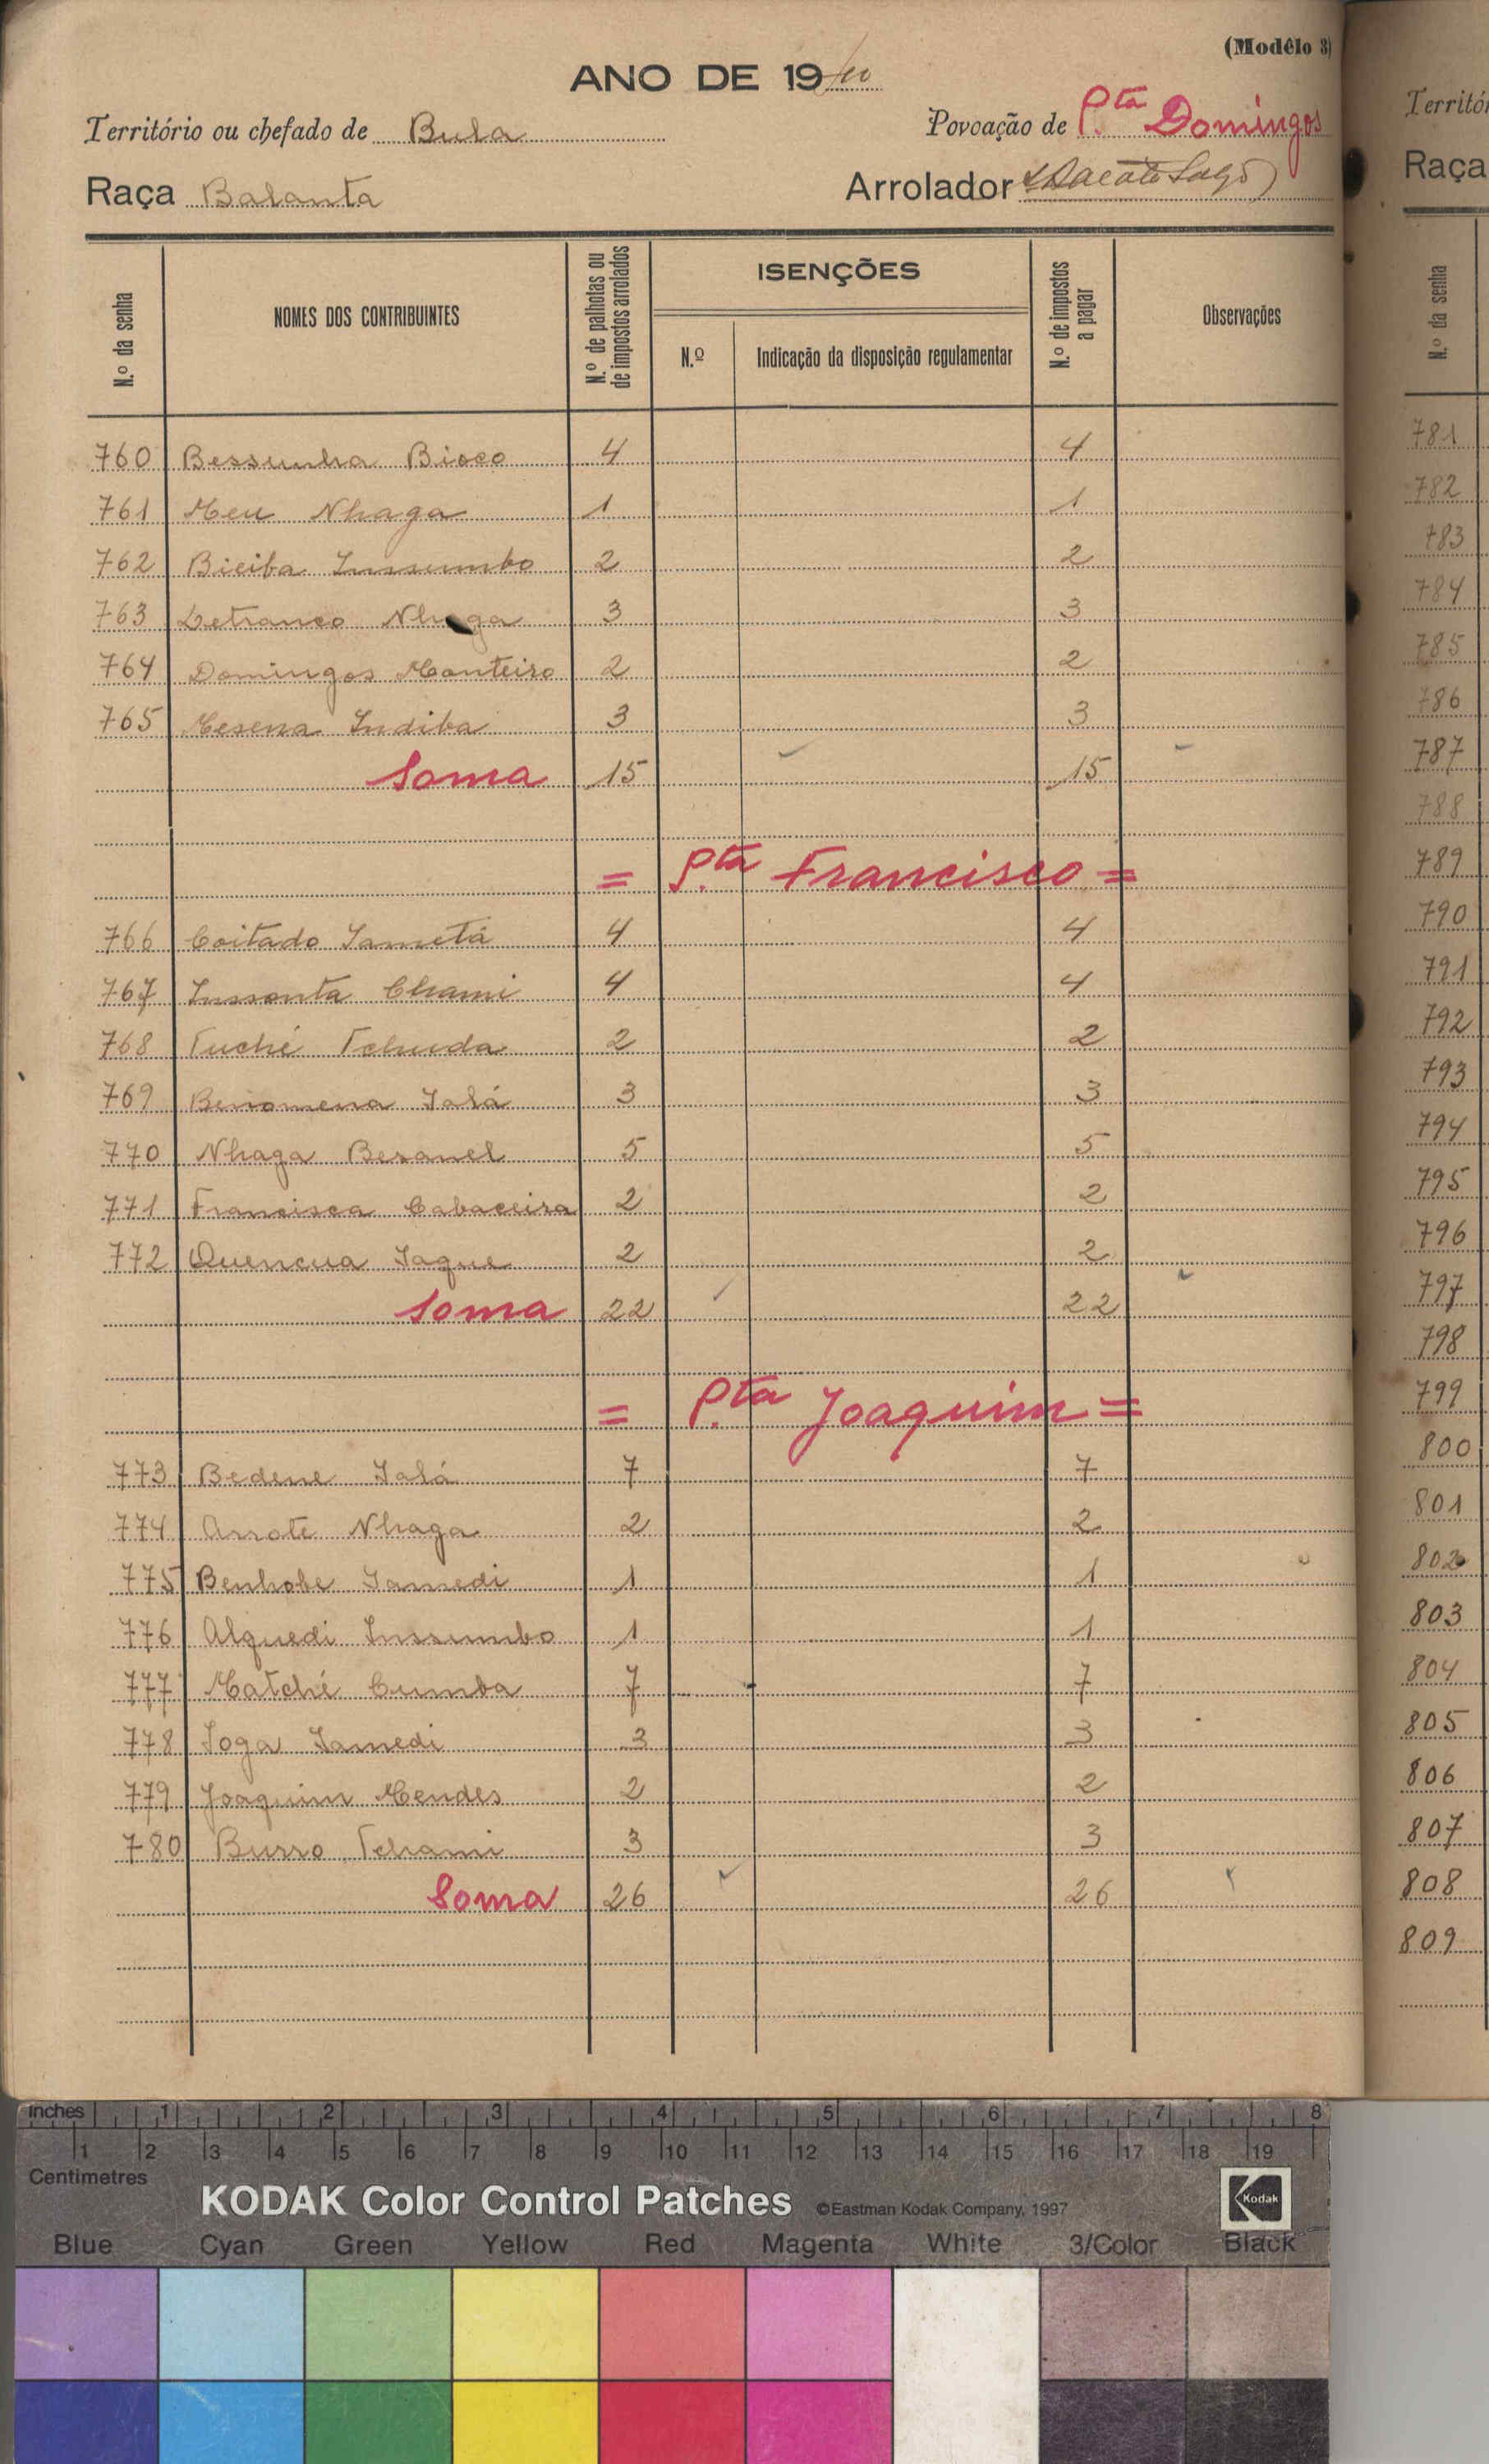 (Modêlo 3)
ANO DE 19
Território ou chefado de Bula
Povoação de P.ta Domingos
Raça Balanta
Arrolador
N.º da senha
NOMES DOS CONTRIBUINTES
N.º de palhotas ou de impostos arrolados
ISENÇÕES
N.º
Indicação da disposição regulamentar
N.º de impostos a pagar
Observações
760 Bessunha Bioco 4 4
761 Meu Nhaga 1 1
762 Bieiba Inssumbo 2 2
763 Letranco Nhaga 3 3
764 Domingos Monteiro 2 2
765 Mesena Indiba 3 3
Soma 15 15
= P.ta Francisco =
766 Coitado Iametá 4 4
767 Inssonta Chami 4 4
768 Tuché Tchuda 2 2
769 Benomena Ialá 3 3
770 Nhaga Besanel 5 5
771 Francisca Cabaceira 2 2
772 Quencua Iaque 2 2
Soma 22 22
= P.ta Joaquim =
773 Bedene Ialá 7 7
774 Arrote Nhaga 2 2
775 Benhobe Iamedi 1 1
776 Alquedi Inssumbo 1 1
777 Matché Cumba 7 7
778 Ioga Iamedi 3 3
779 Joaquim Mendes 2 2
780 Burro Tchami 3 3
Soma 26 26
Territó
Raça
N.º da senha
781
782
783
784
785
786
787
788
789
790
791
792
793
794
795
796
797
798
799
800
801
802
803
804
805
806
807
808
809
inches 1 2 3 4 5 6 7 8
1 2 3 4 5 6 7 8 9 10 11 12 13 14 15 16 17 18 19
Centimetres
KODAK Color Control Patches ©Eastman Kodak Company, 1997 Kodak
Blue Cyan Green Yellow Red Magenta White 3/Color Black